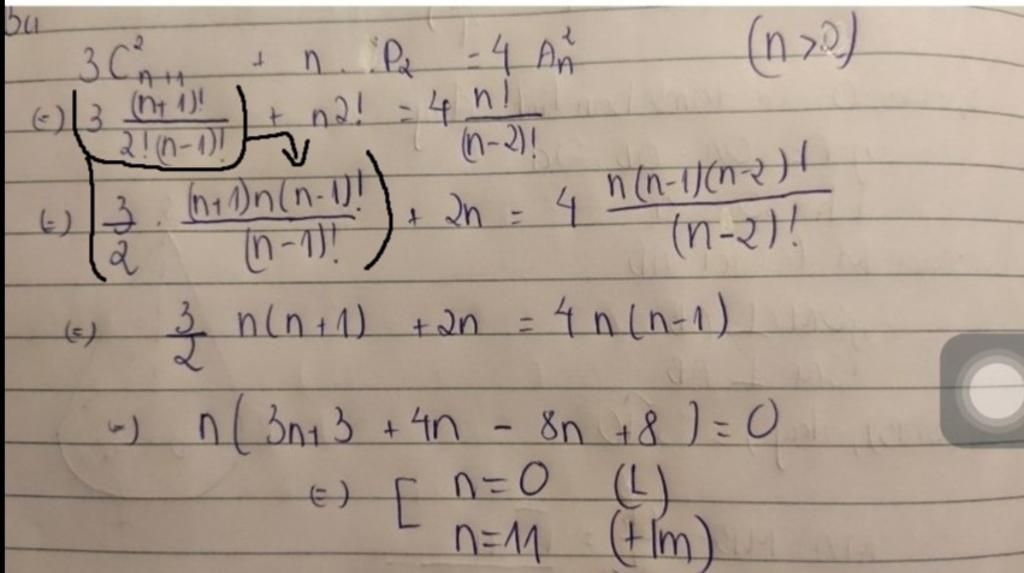 3C²ₙ₊₁ + n . P₂ = 4 A²ₙ (n > 0)
(=) 3 (n+1)!/2!(n-1)! + n2! = 4 n!/(n-2)!
(=) (3/2 . (n+1)n(n-1)!/(n-1)!) + 2n = 4 n(n-1)(n-2)!/(n-2)!
(=) 3/2 n(n+1) + 2n = 4n(n-1)
(=) n(3n+3 + 4n - 8n + 8) = 0
(=) [ n=0 (L)
n=11 (t/m)